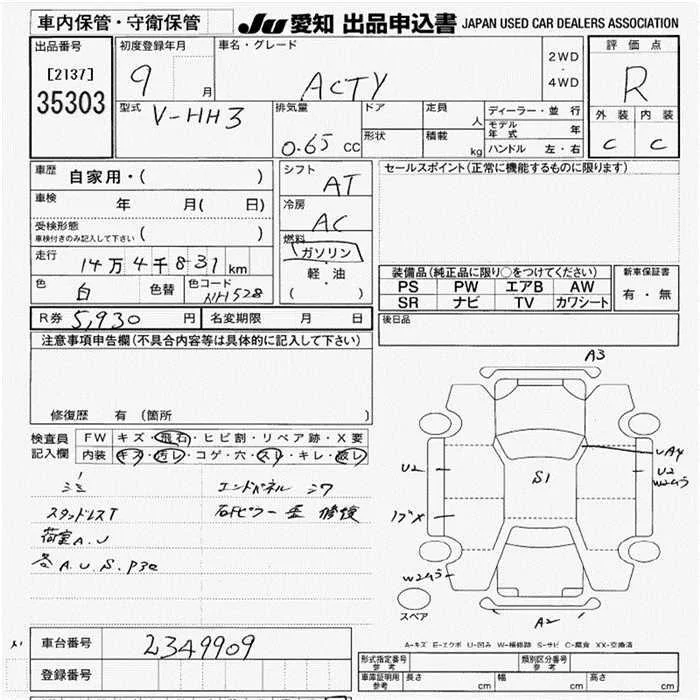 車内保管・守衛保管 JU 愛知 出品申込書 JAPAN USED CAR DEALERS ASSOCIATION
出品番号
[2137]
35303
初度登録年月
9 月
車名・グレード
ACTY
2WD
・
4WD
評価点
R
外装 内装
C C
型式 V-HH3
排気量
0.65 CC
ドア
形状
定員 人
積載 kg
ディーラー・並行
モデル年式 年
ハンドル 左・右
車歴 自家用・( )
車検 年 月( 日)
受検形態
車検付きのみ記入して下さい ( )
走行 14万4千831km
色 白 色替 色コード NH528
シフト AT
冷房 AC
燃料
ガソリン
軽・油
( )
セールスポイント(正常に機能するものに限ります)
装備品(純正品に限り○をつけてください)
PS PW エアB AW
SR ナビ TV カワシート
新車保証書
有・無
R券 5,930 円 名変期限 月 日
後日品
注意事項申告欄(不具合内容等は具体的に記入して下さい)
修復歴 有 (箇所
検査員
記入欄
FW キズ・飛石・ヒビ割・リペア跡・X要
内装 キズ・汚レ・コゲ・穴・スレ・キレ・破レ
エンドパネル
スタッドレスT
荷室A.U
各A.U.S.P3c
修復
A3
UA4
U2
S1
U2
W2ムラ
W2ムラ
A2
スペア
A-キズ E-エクボ U-凹み W-補修跡 S-サビ C-腐食 XX-交換済
車台番号 2349909
登録番号
形式指定番号
参考
類別区分番号
参考
車庫証明用
参考
長さ cm 幅 cm 高さ cm